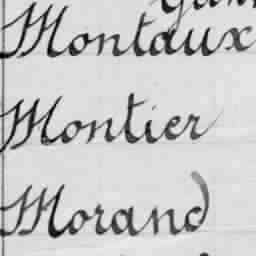 Montaux
Montier
Morand